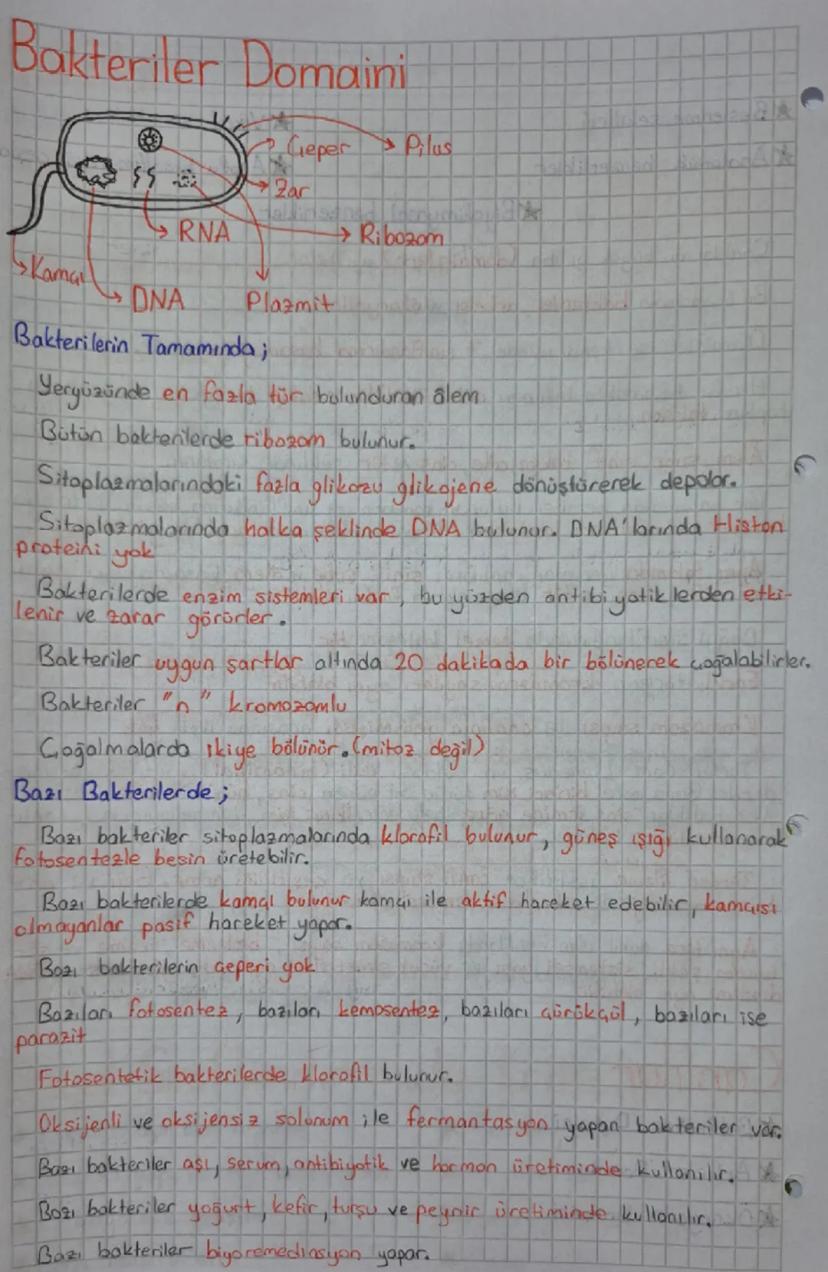 Bakteriler Domaini
Çeper
Pilus
Zar
RNA
Ribozom
Kamçı
DNA
Plazmit
Bakterilerin Tamamında;
Yeryüzünde en fazla tür bulunduran âlem
Bütün bakterilerde ribozom bulunur.
Sitoplazmalarındaki fazla glikozu glikojene dönüştürerek depolar.
Sitoplazmalarında halka şeklinde DNA bulunur. DNA'larında Histon
proteini yok
Bakterilerde enzim sistemleri var, bu yüzden antibiyotiklerden etki-
lenir ve zarar görürler.
Bakteriler uygun şartlar altında 20 dakikada bir bölünerek çoğalabilirler.
Bakteriler "n" kromozomlu
Çoğalmalarda ikiye bölünür. (mitoz değil)
Bazı Bakterilerde;
Bazı bakteriler sitoplazmalarında klorofil bulunur, güneş ışığı kullanarak
fotosentezle besin üretebilir.
Bazı bakterilerde kamçı bulunur kamçı ile aktif hareket edebilir, kamçısı
olmayanlar pasif hareket yapar.
Bazı bakterilerin çeperi yok
Bazıları fotosentez, bazıları kemosentez, bazıları çürükçül, bazıları ise
parazit
Fotosentetik bakterilerde klorofil bulunur.
Oksijenli ve oksijensiz solunum ile fermantasyon yapan bakteriler var.
Bazı bakteriler aşı, serum, antibiyotik ve hormon üretiminde kullanılır.
Bazı bakteriler yoğurt, kefir, turşu ve peynir üretiminde kullanılır.
Bazı bakteriler biyoremediasyon yapar.